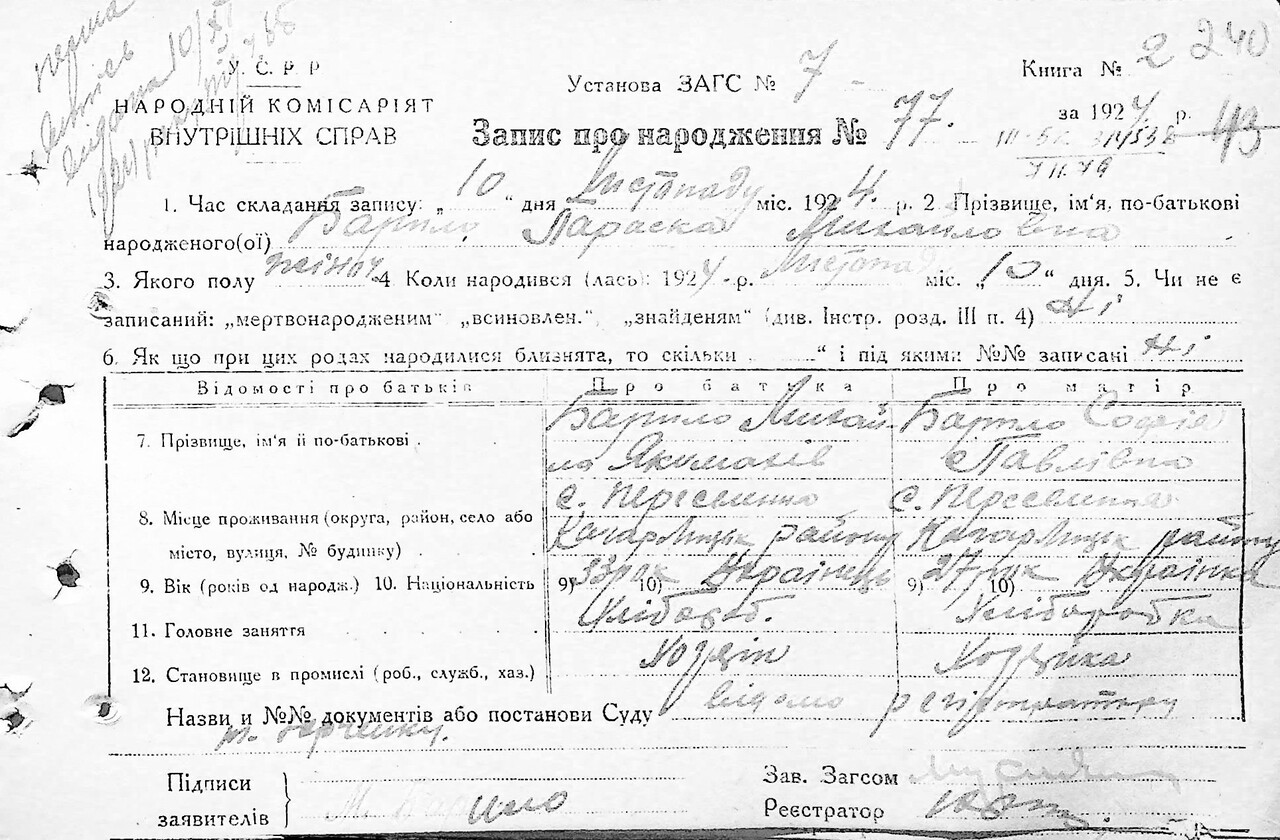 перша
У. С. Р. Р
НАРОДНІЙ КОМІСАРІЯТ
ВНУТРІШНІХ СПРАВ
Установа ЗАГС № 7
Книга № 2 240
за 1924 р.
Запис про народження № 77.
43
7 II 79
1. Час складання запису: „ 10 “ дня Листопаду міс. 1924. р. 2 Прізвище, ім'я, по-батькові
народженого(ої) Параска Михайлівна
3. Якого полу жіноч 4 Коли народився (лась): 1924 р. Листопад міс. „ 10 “ дня. 5. Чи не є
записаний: „мертвонародженим“ „всиновлен.“, „знайденям“ (див. Інстр. розд. III п. 4) Ні
6. Як що при цих родах народилися близнята, то скільки “ і під якими №№ записані Ні
Відомості про батьків Про батька Про матір
7. Прізвище, ім'я й по-батькові Михай- Софія
ло Якимович Павлівна
8. Місце проживання (округа, район, село або с. Переселення с. Переселення
місто, вулиця, № будинку) Кагарлицьк району Кагарлицьк району
9. Вік (років од народж.) 10. Національність 9) 33 рок 10) Українець 9) 27 рок 10) Українка
11. Головне заняття Хлібороб. Хліборобка
12. Становище в промислі (роб., служб., хаз.) Хозяін Хозяйка
Назви и №№ документів або постанови Суду відомо регістратору
Підписи
заявителів
Зав. Загсом
Реєстратор